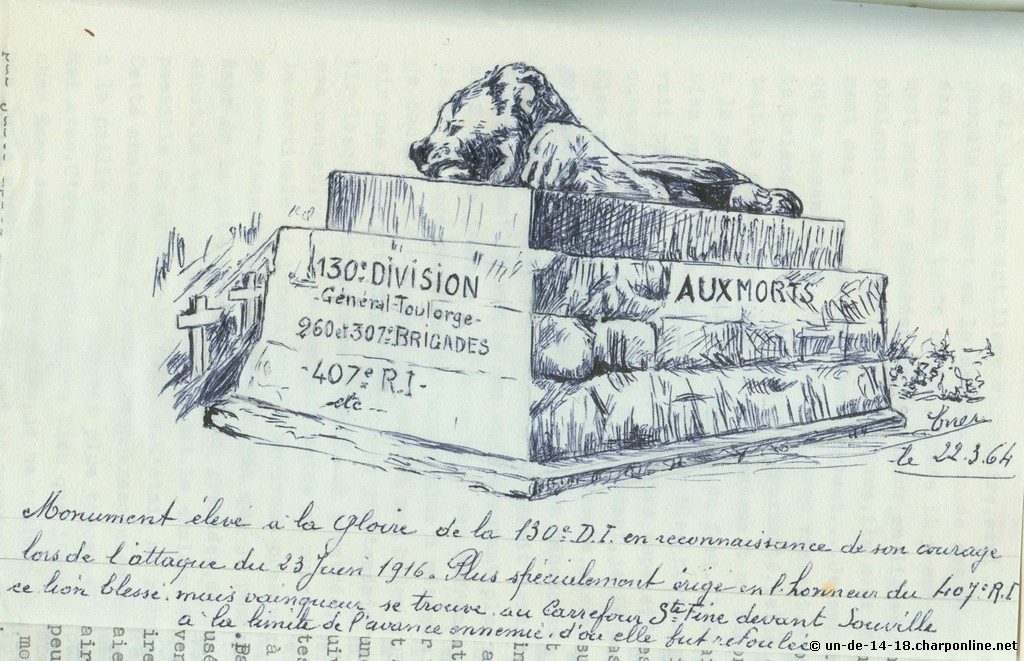 130e DIVISION
-Général-Toulorge-
260 et 307e BRIGADES
-407e R.I-
etc-
AUX MORTS
le 22.3.64
Monument élevé à la gloire de la 130e D.I. en reconnaissance de son courage
lors de l'attaque du 23 Juin 1916. Plus spécialement érigé en l'honneur du 407e R.I
ce lion blessé, mais vainqueur se trouve au Carrefour Ste Fine devant Souville
à la limite de l'avance ennemie, d'où elle fut refoulée
© un-de-14-18.charponline.net